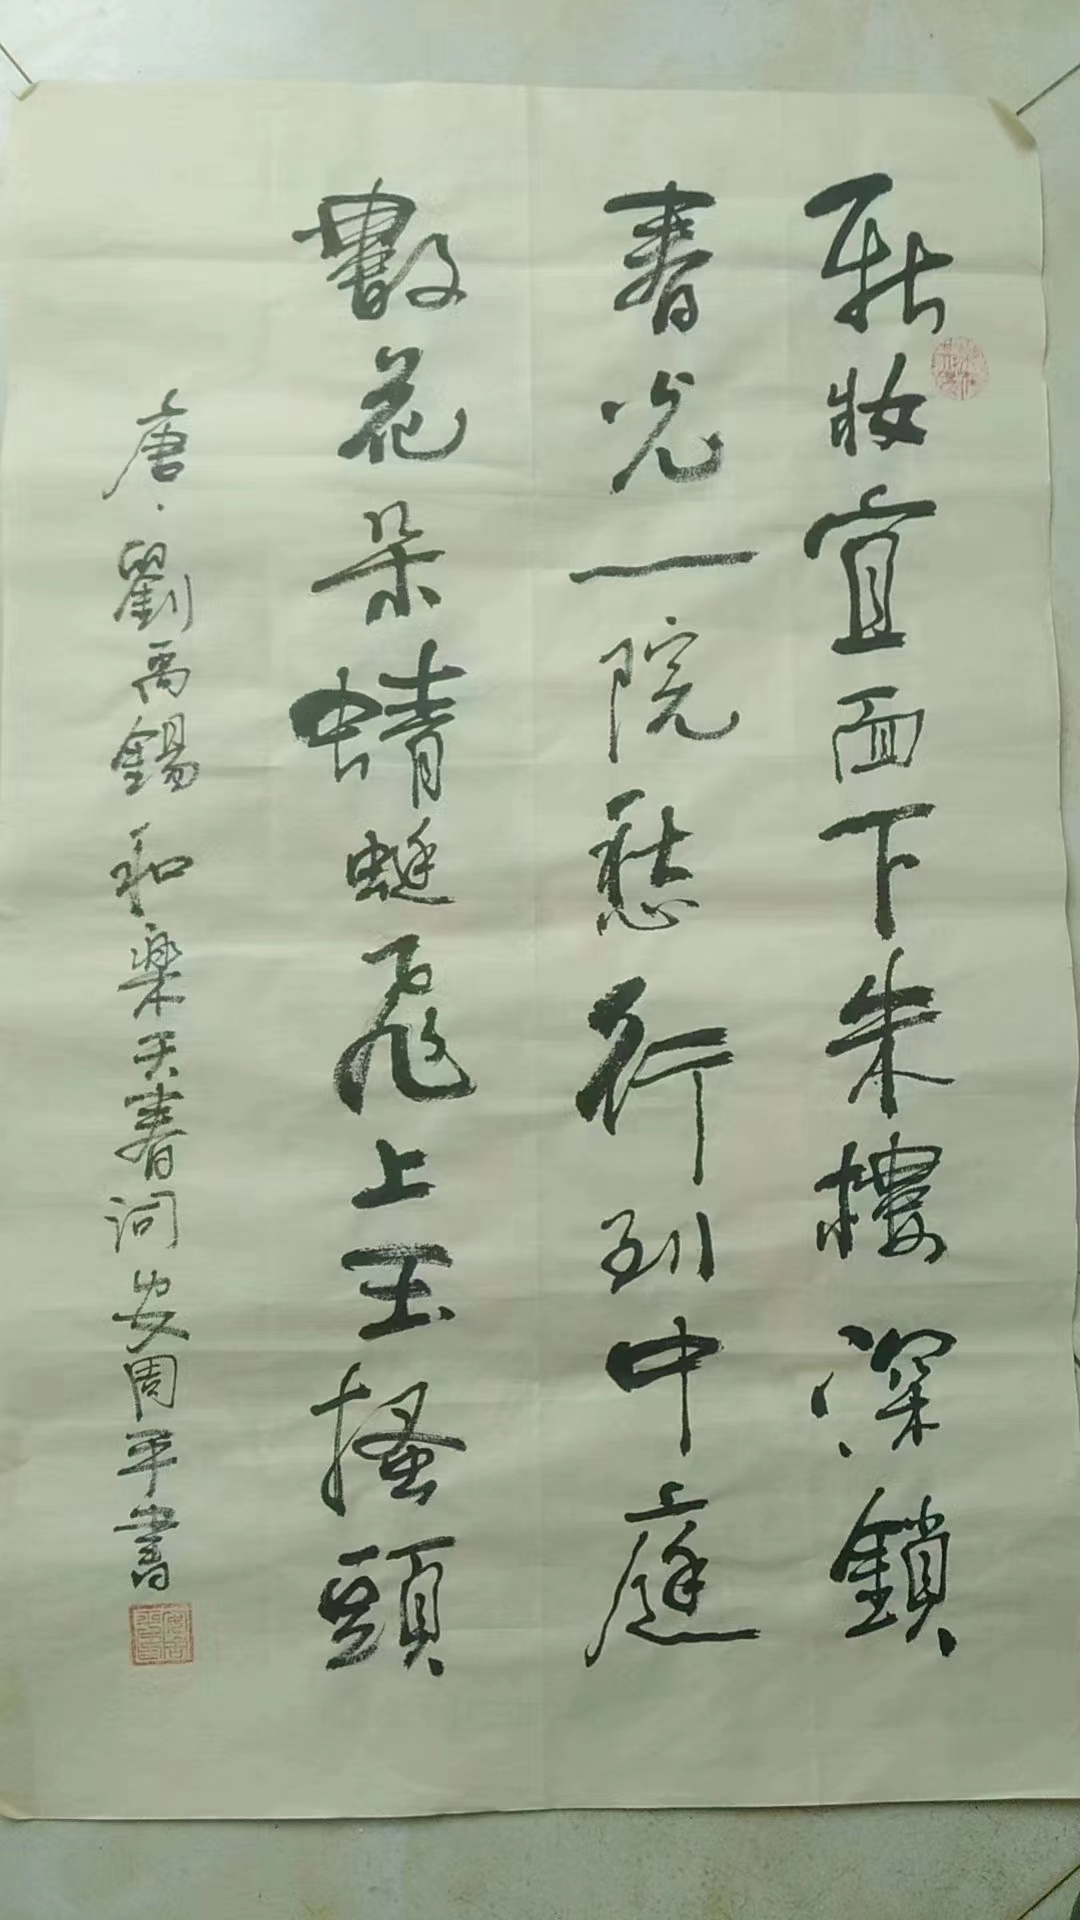 新妝宜面下朱樓深鎖
春光一院愁行到中庭
數花朵蜻蜓飛上玉搔頭
唐·劉禹錫和樂天春詞安周平書